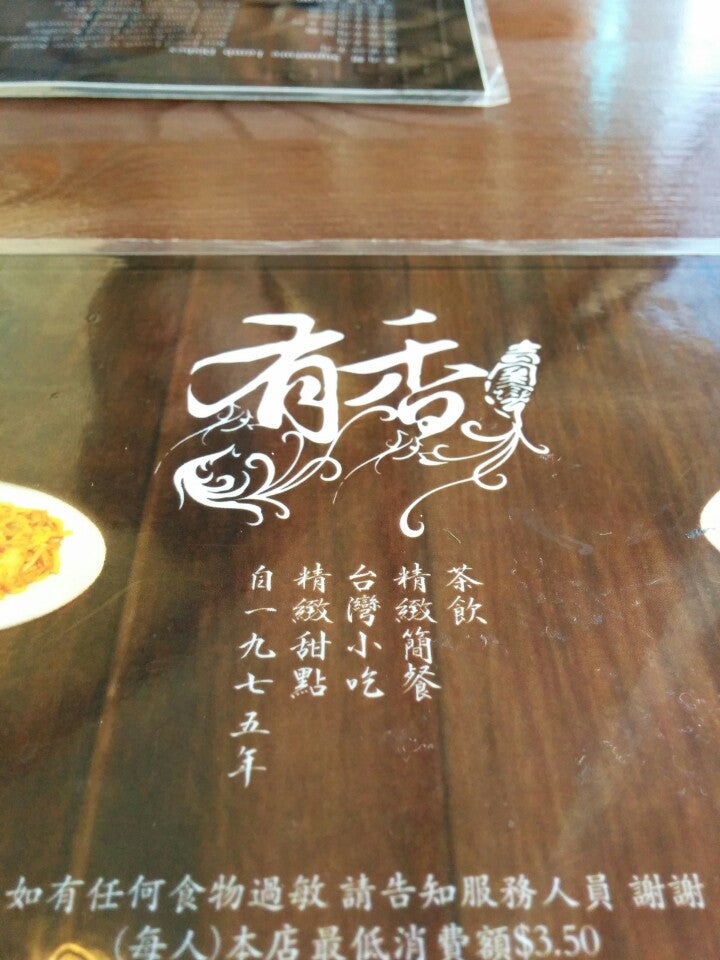 有香
茶飲
精緻簡餐
台灣小吃
精緻甜點
自一九七五年
如有任何食物過敏 請告知服務人員 謝謝
(每人)本店最低消費額$3.50